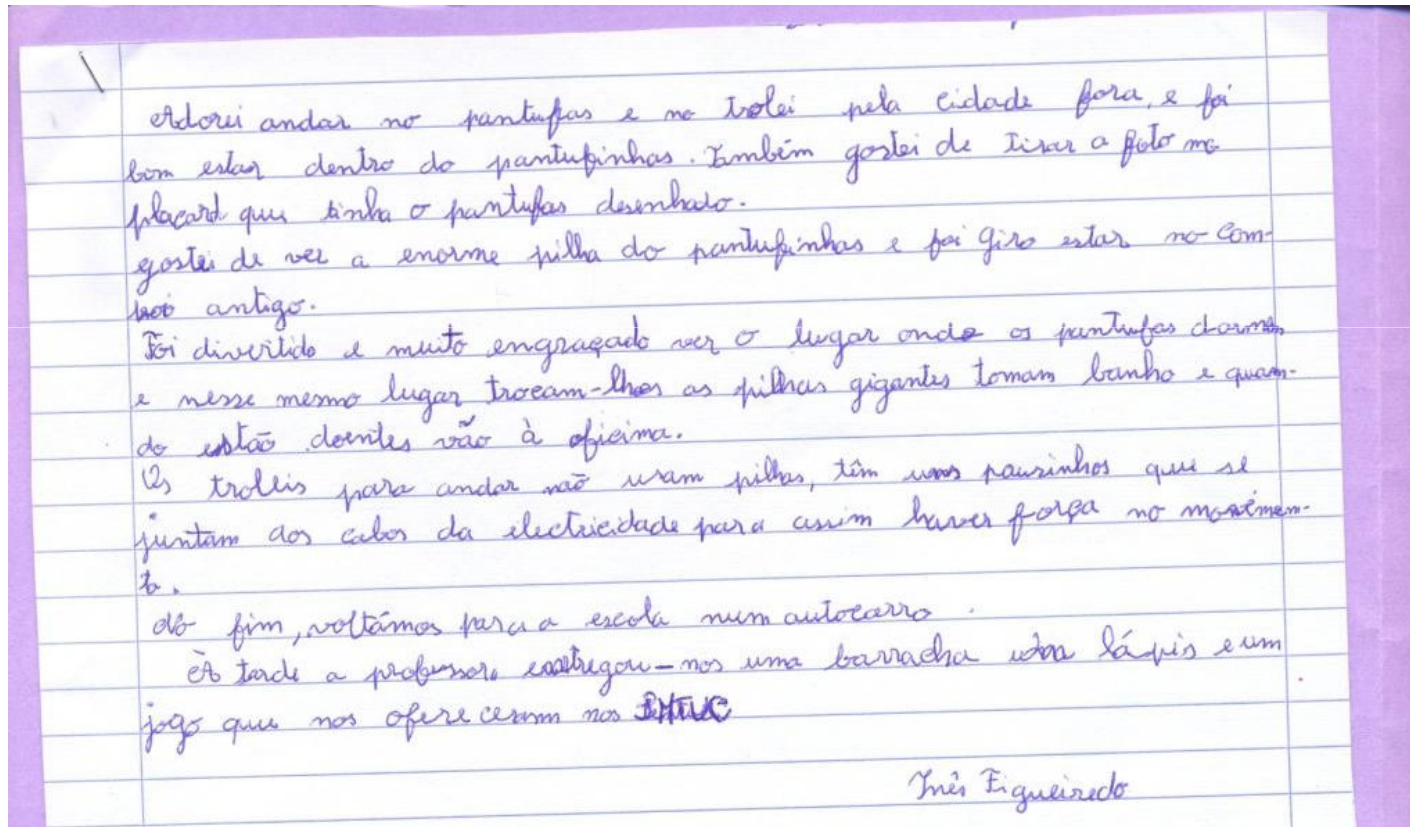 Adorei andar no pantufas e no trolei pela cidade fora, e foi
bom estar dentro do pantufinhas. Também gostei de tirar a foto no
placard que tinha o pantufas desenhado.
gostei de ver a enorme pilha do pantufinhas e foi giro estar no com-
boio antigo.
Foi divertido e muito engraçado ver o lugar onde os pantufas dormem
e nesse mesmo lugar trocam-lhes as pilhas gigantes tomam banho e quan-
do estão doentes vão à oficina.
Os troleis para andar não usam pilhas, têm uns pauzinhos que se
juntam aos cabos da electricidade para assim haver força no movimen-
to.
No fim, voltámos para a escola num autocarro.
À tarde a professora entregou-nos uma borracha um lápis e um
jogo que nos ofereceram nos SMTUC
Inês Figueiredo